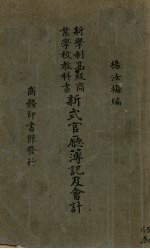 楊汝梅編
新學制高級商
業學校教科書
新式官廳簿記及會計
商務印書館發行